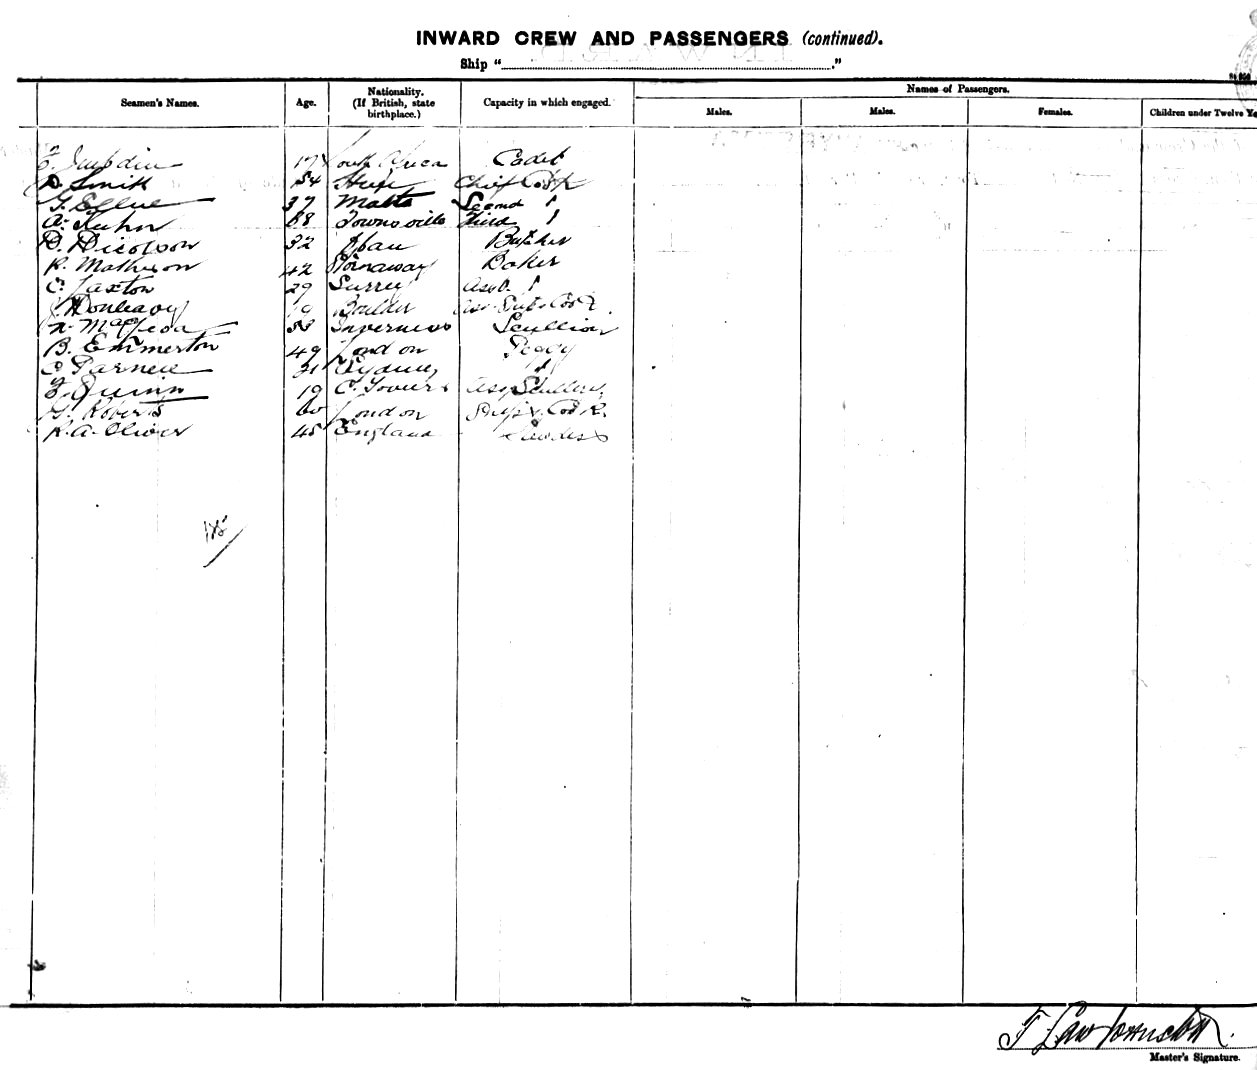 INWARD CREW AND PASSENGERS (continued).
Ship "
Seamen's Names. Age. Nationality. (If British, state birthplace.) Capacity in which engaged. Names of Passengers.
Males. Males. Females. Children under Twelve
17 South Africa Cadet
D. Smith 54 Chief Cook
G. Ellul 37 Malta Second "
A. Kuhn Townsville Third "
D. Nicolson 32 Butcher
R. Matheson 42 Stornaway Baker
C. Saxton 29 Surrey Asst. "
Dunleavy 19 Boulder Cook
N. MacLeod 33 Inverness Scullion
B. Emmerton 49 London Peggy
C. Parnell 21 Sydney "
F. Quinn 19 C. Towers
G. Roberts 60 London Ship's Cook.
R. A. Oliver 45 England
Master's Signature.